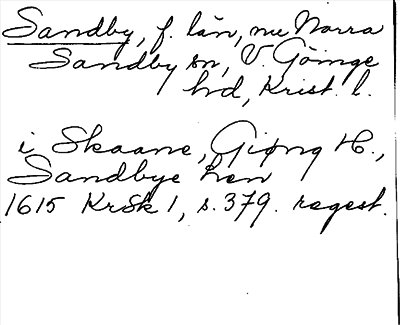 Sandby, f. län, nu Norra
Sandby sn, V. Göinge
hd, Krist. l.
i Skaane, Giøng H.,
Sandbye Len
1615 KrSk 1, s. 379. regest.